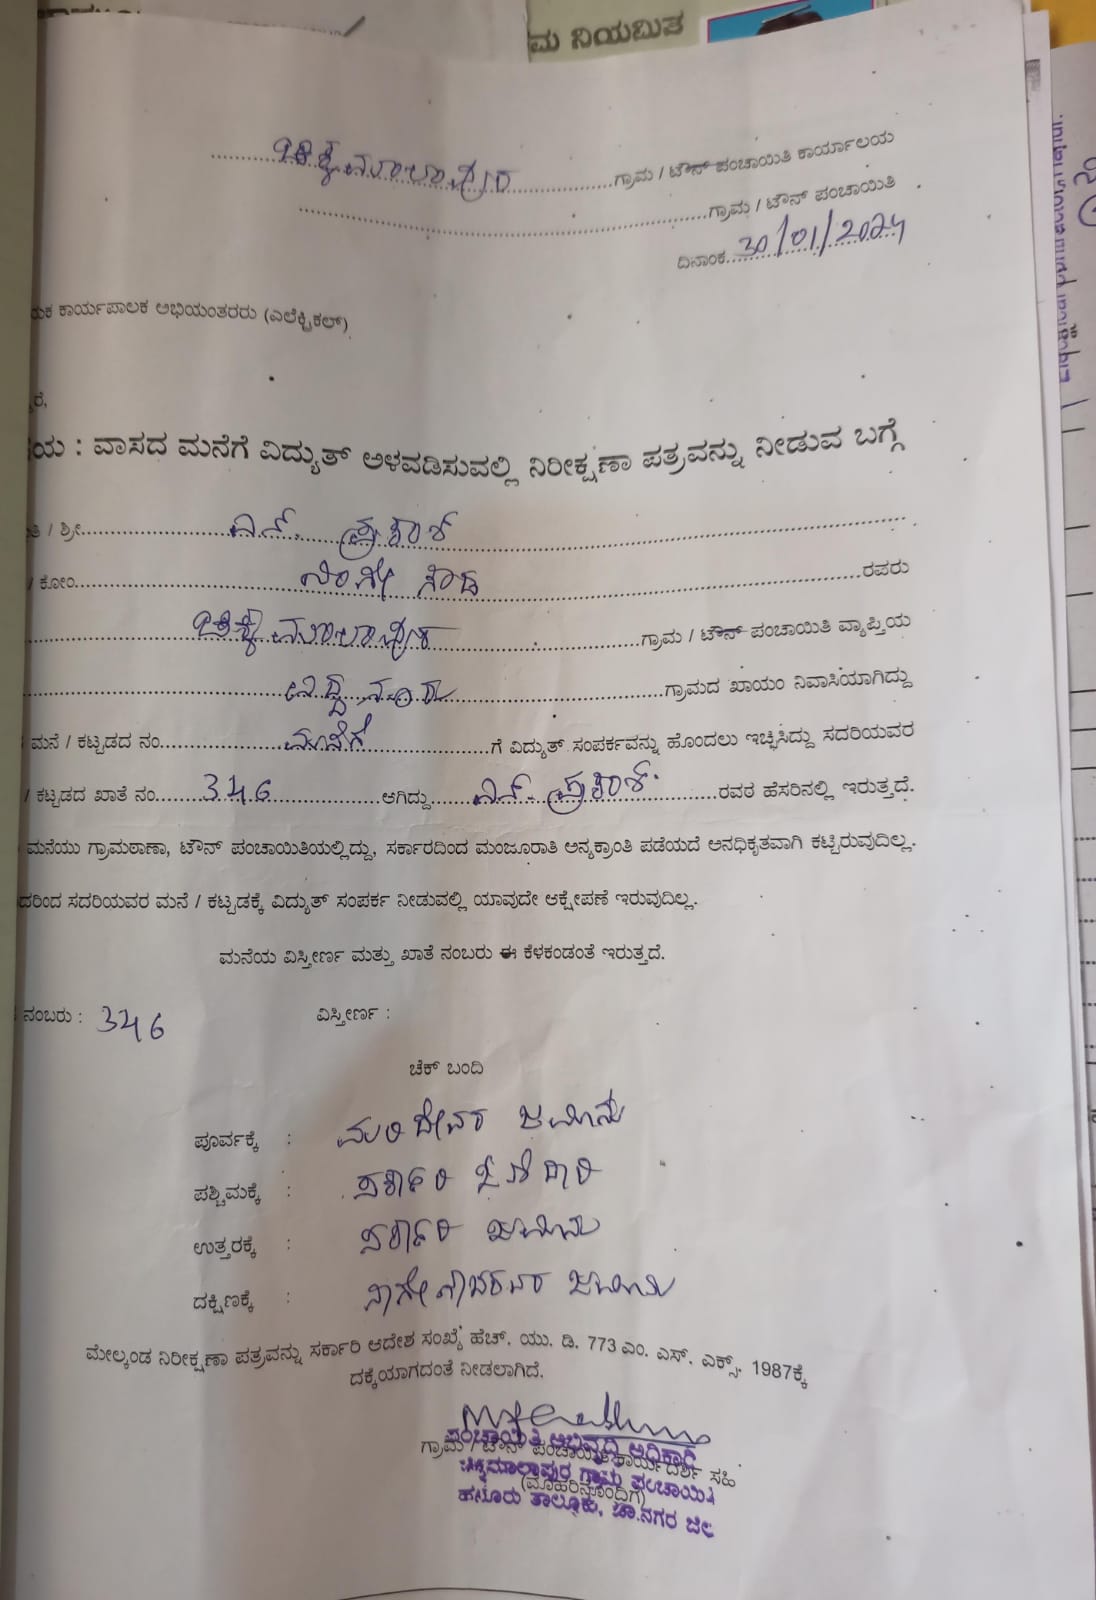 ಮ ನಿಯಮಿತ
ಚಿಕ್ಕಮಾಲಾಪುರ ಗ್ರಾಮ / ಟೌನ್ ಪಂಚಾಯಿತಿ ಕಾರ್ಯಾಲಯ
ಗ್ರಾಮ / ಟೌನ್ ಪಂಚಾಯಿತಿ
ದಿನಾಂಕ 30/01/2024
ಯಕ ಕಾರ್ಯಪಾಲಕ ಅಭಿಯಂತರರು (ಎಲೆಕ್ಟ್ರಿಕಲ್)
ರೆ,
ಯ : ವಾಸದ ಮನೆಗೆ ವಿದ್ಯುತ್ ಅಳವಡಿಸುವಲ್ಲಿ ನಿರೀಕ್ಷಣಾ ಪತ್ರವನ್ನು ನೀಡುವ ಬಗ್ಗೆ
/ ಶ್ರೀ ಎನ್. ಪ್ರಕಾಶ್
/ ಕೋಂ ಗೌಡ ರವರು
ಚಿಕ್ಕಮಾಲಾಪುರ ಗ್ರಾಮ / ಟೌನ್ ಪಂಚಾಯಿತಿ ವ್ಯಾಪ್ತಿಯ
ಗ್ರಾಮದ ಖಾಯಂ ನಿವಾಸಿಯಾಗಿದ್ದು
ಮನೆ / ಕಟ್ಟಡದ ನಂ ಮನೆಗೆ ಗೆ ವಿದ್ಯುತ್ ಸಂಪರ್ಕವನ್ನು ಹೊಂದಲು ಇಚ್ಛಿಸಿದ್ದು ಸದರಿಯವರ
/ ಕಟ್ಟಡದ ಖಾತೆ ನಂ 346 ಆಗಿದ್ದು ಎನ್. ಪ್ರಕಾಶ್. ರವರ ಹೆಸರಿನಲ್ಲಿ ಇರುತ್ತದೆ.
ಮನೆಯು ಗ್ರಾಮಠಾಣಾ, ಟೌನ್ ಪಂಚಾಯಿತಿಯಲ್ಲಿದ್ದು, ಸರ್ಕಾರದಿಂದ ಮಂಜೂರಾತಿ ಅನ್ಯಕ್ರಾಂತಿ ಪಡೆಯದೆ ಅನಧಿಕೃತವಾಗಿ ಕಟ್ಟಿರುವುದಿಲ್ಲ.
ದರಿಂದ ಸದರಿಯವರ ಮನೆ / ಕಟ್ಟಡಕ್ಕೆ ವಿದ್ಯುತ್ ಸಂಪರ್ಕ ನೀಡುವಲ್ಲಿ ಯಾವುದೇ ಆಕ್ಷೇಪಣೆ ಇರುವುದಿಲ್ಲ.
ಮನೆಯ ವಿಸ್ತೀರ್ಣ ಮತ್ತು ಖಾತೆ ನಂಬರು ಈ ಕೆಳಕಂಡಂತೆ ಇರುತ್ತದೆ.
ನಂಬರು : 346 ವಿಸ್ತೀರ್ಣ :
ಚೆಕ್ ಬಂದಿ
ಪೂರ್ವಕ್ಕೆ : ಮರಿದೇವರ ಜಮೀನು
ಪಶ್ಚಿಮಕ್ಕೆ : ಸರ್ಕಾರಿ ಓಣಿ ದಾರಿ
ಉತ್ತರಕ್ಕೆ : ಸರ್ಕಾರಿ ಜಮೀನು
ದಕ್ಷಿಣಕ್ಕೆ : ಜಮೀನು
ಮೇಲ್ಕಂಡ ನಿರೀಕ್ಷಣಾ ಪತ್ರವನ್ನು ಸರ್ಕಾರಿ ಆದೇಶ ಸಂಖ್ಯೆ ಹೆಚ್. ಯು. ಡಿ. 773 ಎಂ. ಎಸ್. ಎಕ್ಸ್. 1987ಕ್ಕೆ
ದಕ್ಕೆಯಾಗದಂತೆ ನೀಡಲಾಗಿದೆ.
ಪಂಚಾಯಿತಿ ಅಭಿವೃದ್ಧಿ ಅಧಿಕಾರಿ
ಗ್ರಾಮ / ಟೌನ್ ಪಂಚಾಯಿತಿ ಕಾರ್ಯದರ್ಶಿ ಸಹಿ
ಚಿಕ್ಕಮಾಲಾಪುರ ಗ್ರಾಮ ಪಂಚಾಯಿತಿ
(ಮೊಹರಿನೊಂದಿಗೆ)
ಹನೂರು ತಾಲ್ಲೂಕು, ಚಾ.ನಗರ ಜಿಲ